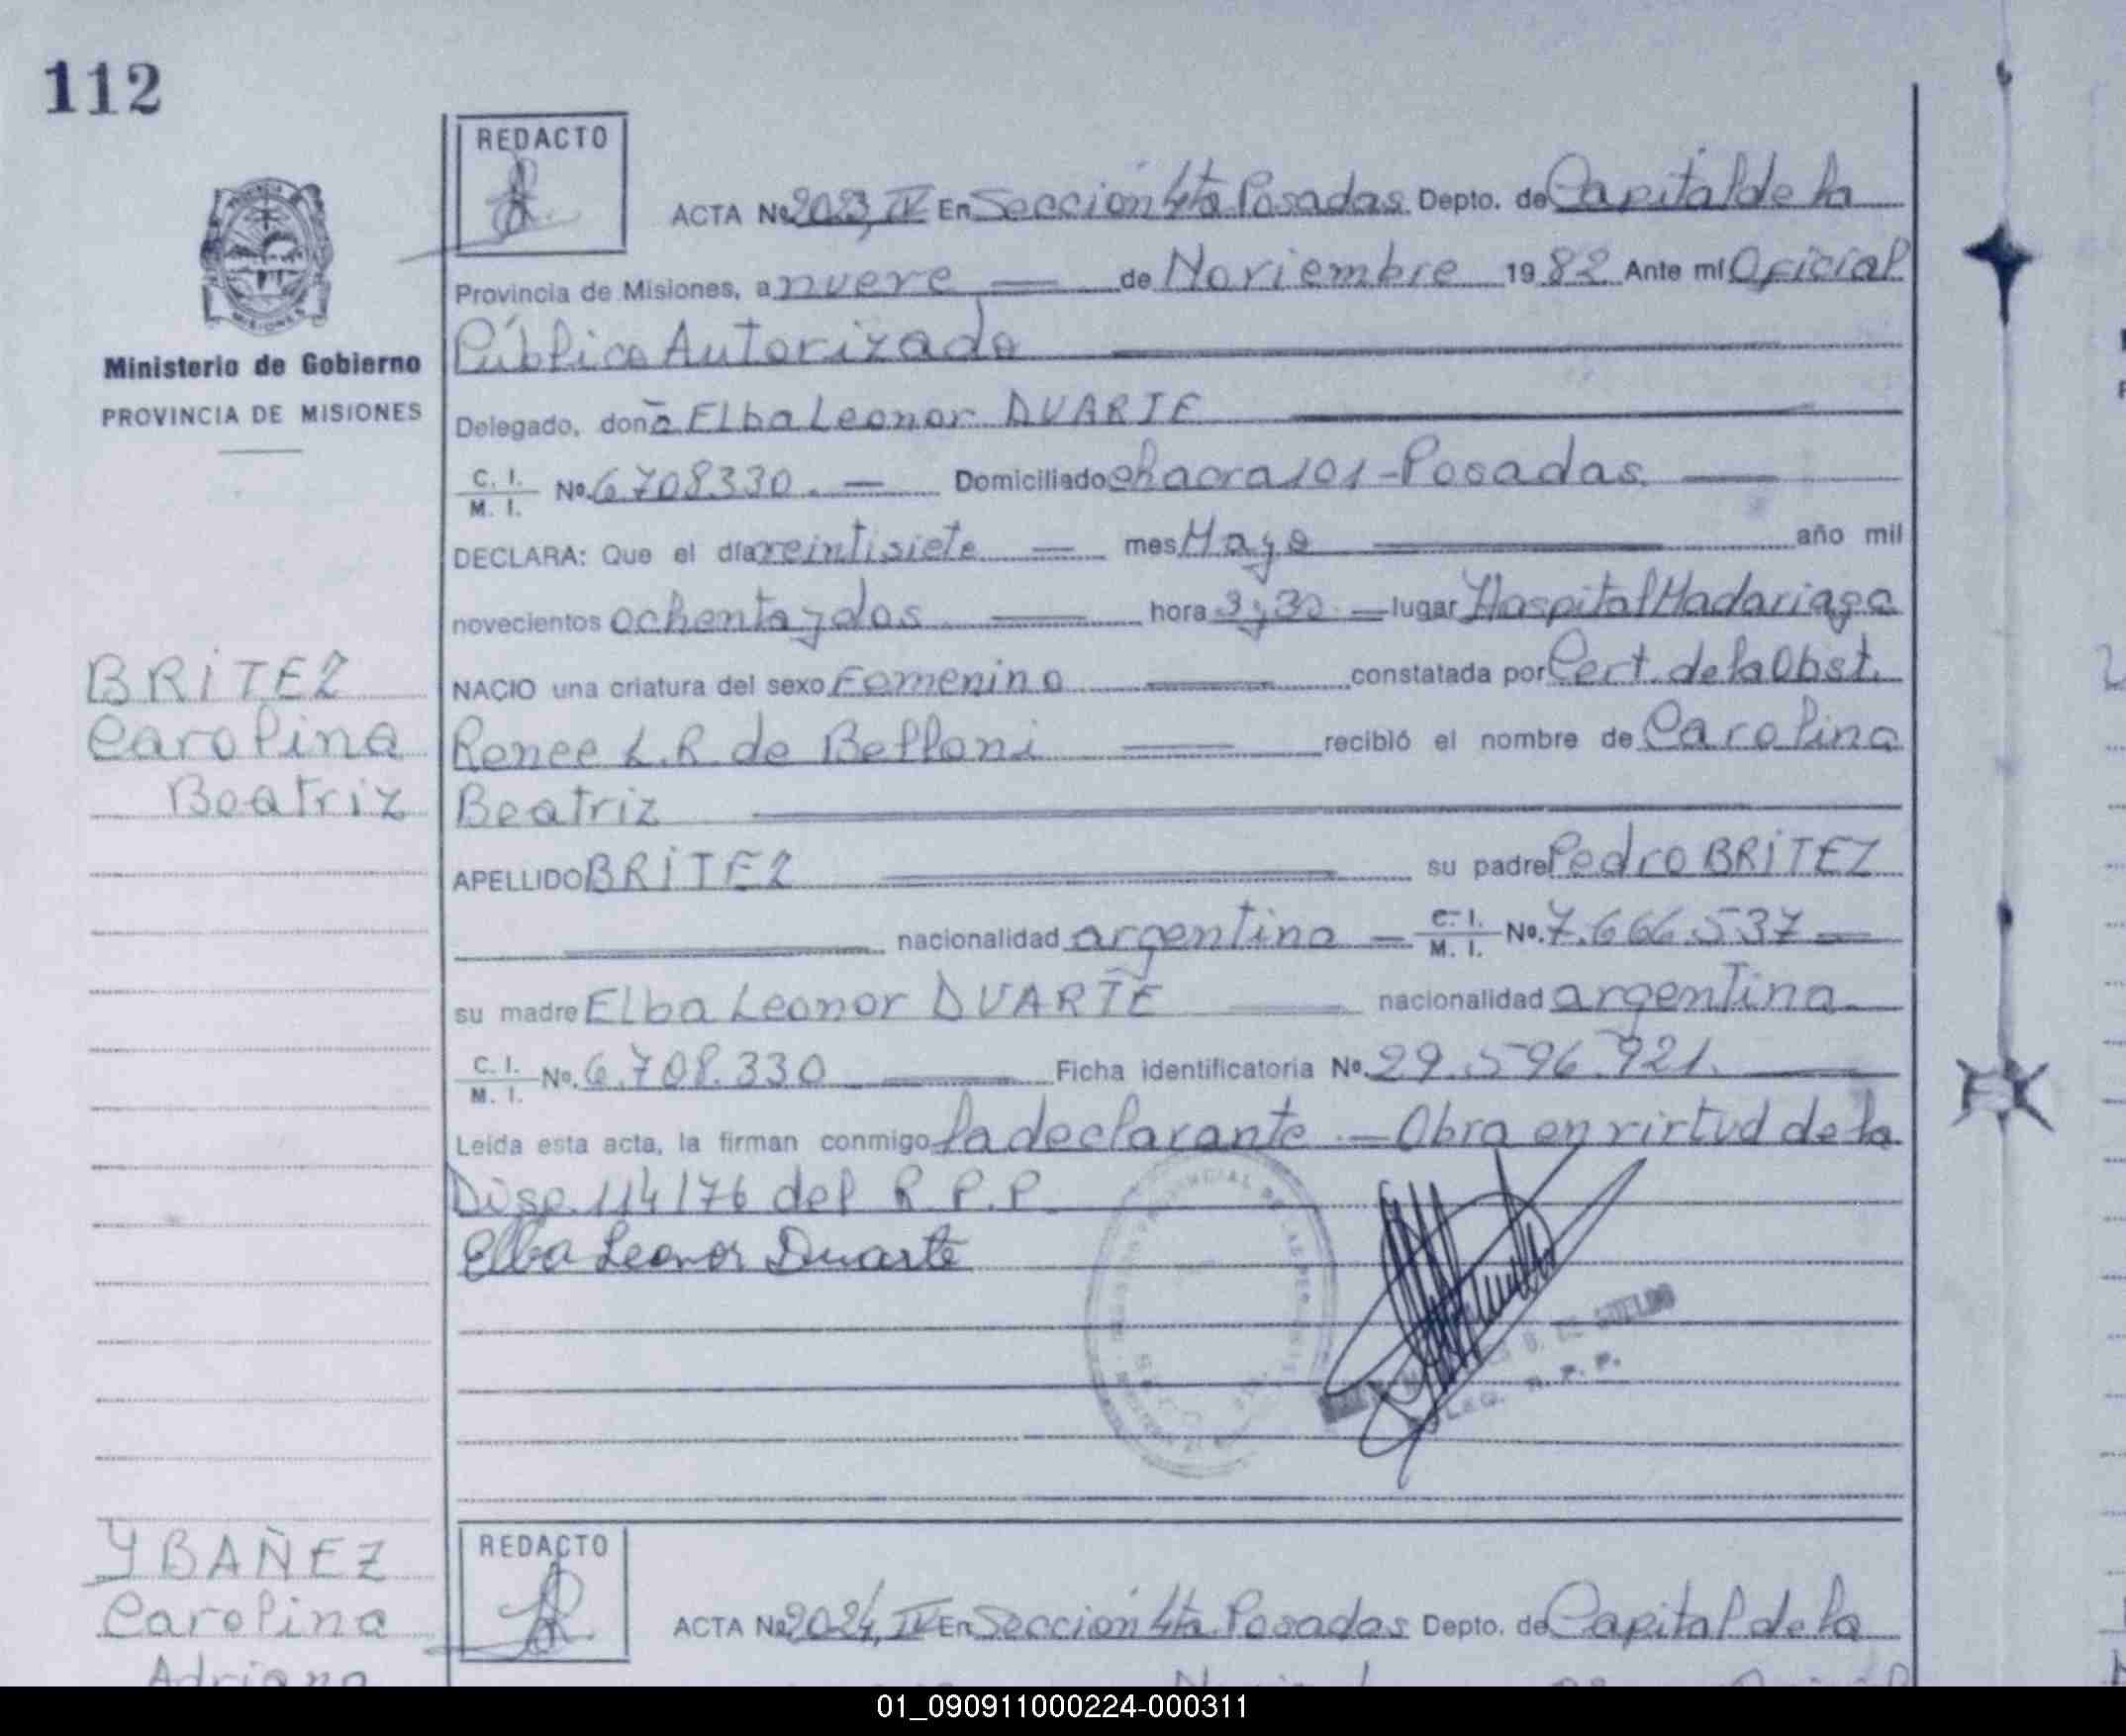 112
REDACTO
ACTA Nº 2023, IV En Sección 4ta Posadas Depto. de Capital de la
Provincia de Misiones, a nueve de Noviembre 1982 Ante mí Oficial
Público Autorizado
Ministerio de Gobierno
PROVINCIA DE MISIONES
Delegado, doña Elba Leonor DUARTE
C. I. M. I. Nº. 6708330. Domiciliado chacra 101 - Posadas.
DECLARA: Que el día veintisiete mes Mayo año mil
novecientos ochenta y dos hora 3 y 30 lugar Hospital Madariaga
BRITEZ
Carolina
Beatriz
NACIO una criatura del sexo Femenino constatada por Cert. de la Obst.
Renee L.R. de Belloni recibió el nombre de Carolina
Beatriz
APELLIDO BRITEZ su padre Pedro BRITEZ
nacionalidad argentina C. I. M. I. Nº. 7.666.537
su madre Elba Leonor DUARTE nacionalidad argentina
C. I. M. I. Nº. 6.708.330 Ficha identificatoria Nº. 29.596.921.
Leida esta acta, la firman conmigo la declarante. - Obra en virtud de la
Disp. 114/76 del R.P.P.
Elba Leonor Duarte
R. P. P.
YBAÑEZ
Carolina
Adriana
REDACTO
ACTA Nº 2024, IV En Sección 4ta. Posadas Depto. de Capital de la
01_090911000224-000311